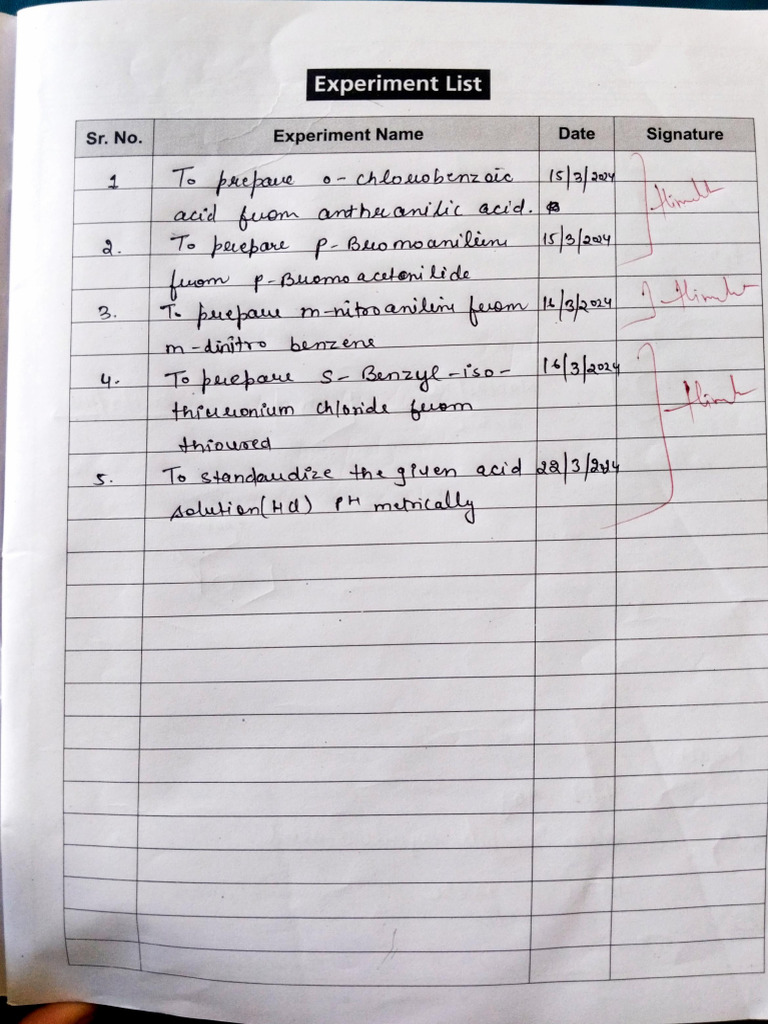 Experiment List
Sr. No. Experiment Name Date Signature
1 To prepare o-chlorobenzoic 15/3/2024
acid from antheranilic acid.
2. To prepare p-Bromoanilin 15/3/2024
from p-Bromoacetanilide
3. To prepare m-nitroanilin from 16/3/2024
m-dinitro benzene
4. To prepare S-Benzyl-iso- 16/3/2024
thiuronium chloride from
thioured
5. To standardize the given acid 22/3/2024
solution(HCl) PH metrically